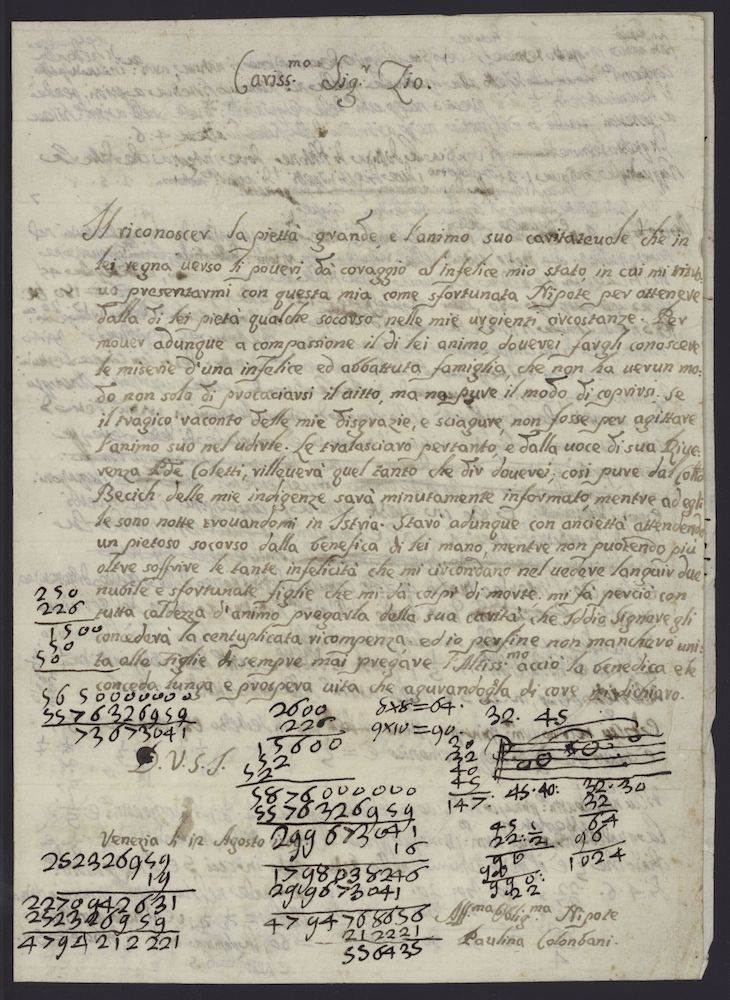 Cariss.mo Sig.r Zio.
Il riconoscer la pietà grande e l'animo suo caritatevole che in
lei regna verso li poveri, dà coraggio al infelice mio stato, in cui mi
presentarmi con questa mia come sfortunata Nipote per ottenere
dalla di lei pietà qualche socorso nelle mie urgienti circostanze. Per
mover adunque a compassione il di lei animo doverei fargli conoscere
le miserie d'una infelice ed abbattuta famiglia, che non ha verun mo-
do non solo di procaciarsi il vitto, ma ne pure il modo di coprirsi. Se
il tragico raconto delle mie disgrazie, e sciagure, non fosse per agittare
l'animo suo nel udirle. Le tralasciarò pertanto, e dalla voce di sua Rive-
renza Coletti, rilleverà quel tanto che dir doverei; così pure dal
Becich delle mie indigenze sarà minutamente informato mentre ad egli
le sono notte trovandomi in Istria. Starò adunque con ancietà attendendo
un pietoso socorso dalla benefica di lei mano, mentre non puotendo più
oltre soffrire le tante infelicità che mi circondano nel vedere languir due
nubile e sfortunate figlie che mi dà colpi di morte. mi fà perciò con
tutta caldezza d'animo pregarla della sua carità, che Iddio Signore gli
concederà la centuplicata ricompenza. ed io perfine non mancherò uni:
ta alle Figlie di sempre mai pregare l'Altiss.mo acciò la benedica e le
conceda lunga e prospera vita che agurandogla di core mi dichiaro.
250
226
1500
50
50
56 50000000
5576326959
73673041
2600
226
15600
52
52
5876000000
5576326959
299673041
16
1798038246
299673041
4794768656
212221
556435
8x8=64.
9x10=90.
30
32
40
45
147.
32. 45
45. 40.
32. 30
32
64
96
1024
45. 1/2
22. 1/2
90
90
990.
D. V. S. I.
Venezia li 12 Agosto
252326959
19
2270942631
252326959
4794212221
Aff.ma Oblig.ma Nipote
Paulina Colombani.